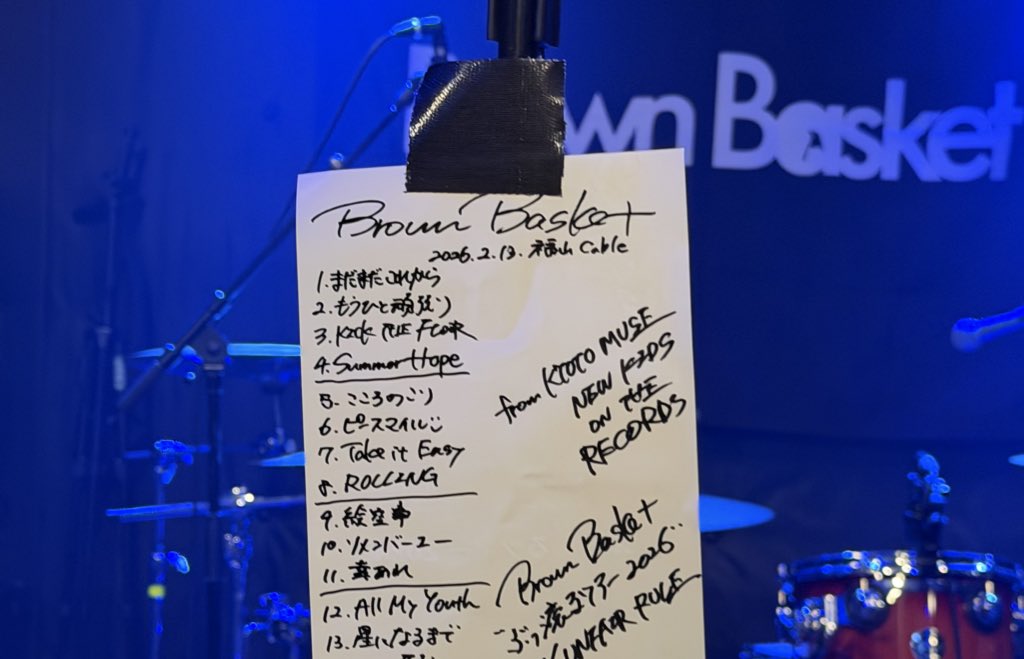 wn Basket
Brown Basket
2026.2.13. 福山 Cable
1. まだまだこれから
2. もうひと頑張り
3. Kick THE FLOOR
4. Summer Hope
5. こころのこり
6. ピースマイル
7. Take it Easy
8. ROLLING
9. 絵空事
10. リメンバーユー
11. 幸あれ
12. All My Youth
13. 星になるまで
from KYOTO MUSE
NEW KIDS
ON THE
RECORDS
Brown Basket
ツアー 2026
UNFAIR RULE